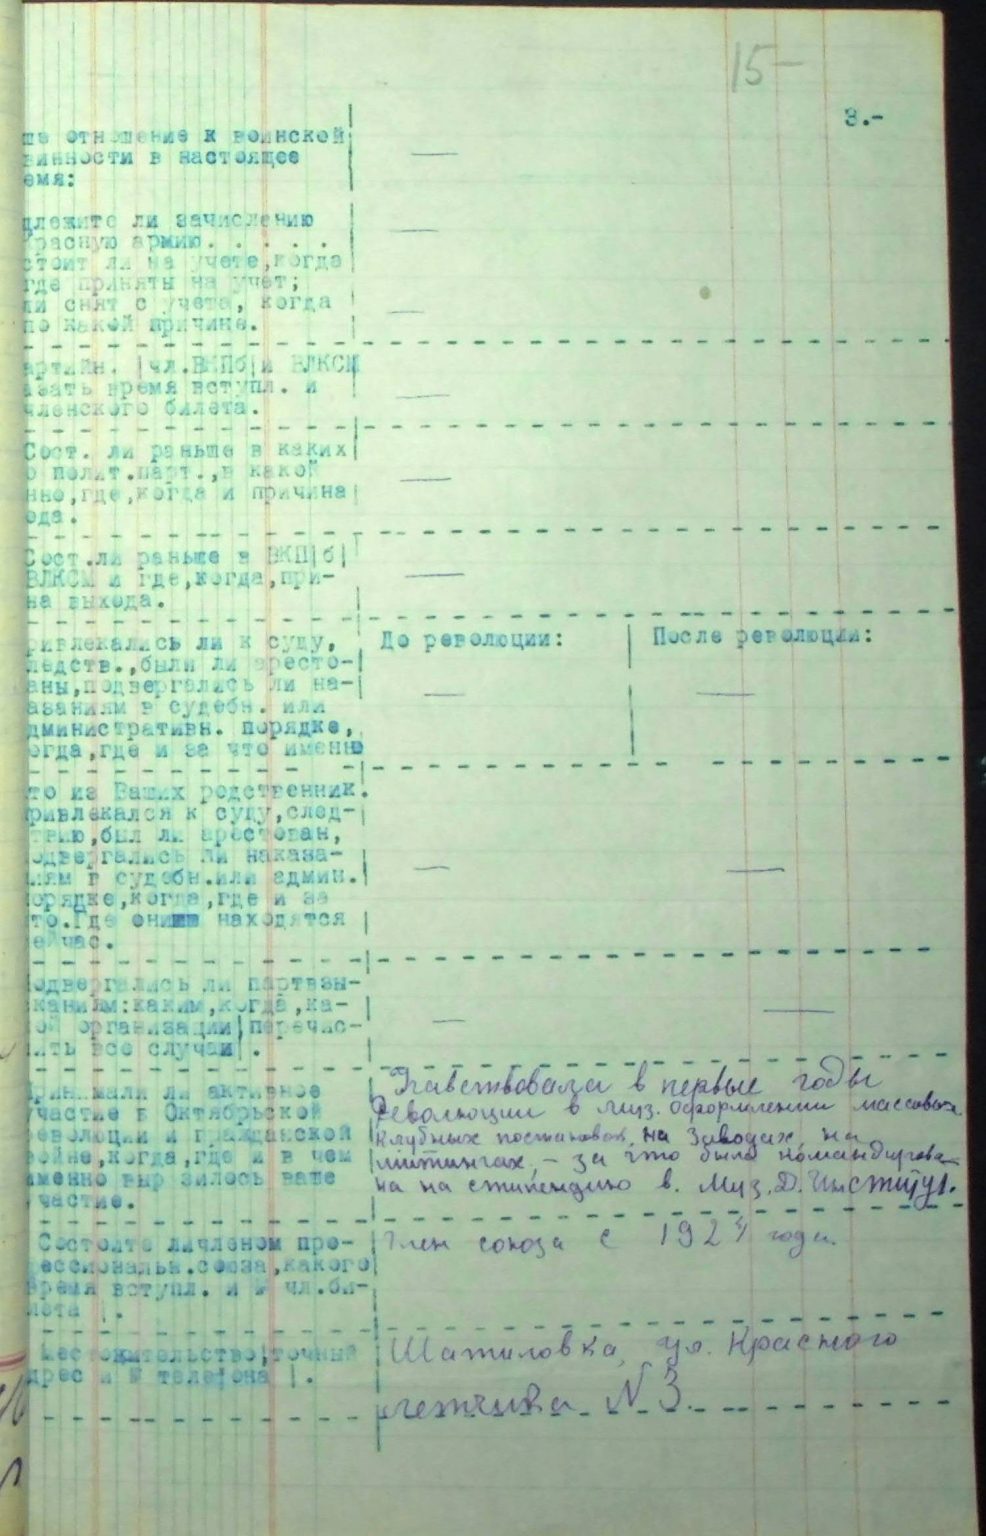 15-
3.-
ше отношение к воинской
винности в настоящее
емя:
—
длежите ли зачислению
Красную армию. . . . .
—
стоит ли на учете,когда
где приняты на учет;
ли снят с учета, когда
по какой причине.
—
артийн. |чл.ВКПб|и ВЛКСМ
азать время вступл. и
членского билета.
—
Сост. ли раньше в каких
о полит.парт.,в какой
нно,где,когда и причина
ода.
—
Сост.ли раньше в ВКП|б|
ВЛКСМ и где,когда,при-
на выхода.
—
До революции: | После революции:
ривлекались ли к суду,
ледств.,были ли аресто-
аны,подвергались ли на-
— —
азаниям в судебн. или
дминистративн. порядке,
огда,где и за что именно
то из Ваших родственник.
ривлекался к суду,след-
твию,был ли арестован,
одвергались ли наказа-
иям в судебн.или админ.
— —
орядке,когда,где и за
то.Где они находятся
ейчас.
одвергались ли партвзы-
каниям:каким,когда,ка-
ой организации|перечис-
— —
ить все случаи|.
принимали ли активное
участие в Октябрьской
революции и гражданской
войне,когда,где и в чем
именно выр зилось ваше
участие.
в первые годы
Революции в муз. оформлении массовых
клубных постановок, на заводах, на
митингах, - за что была командирова-
на на стипендию в. Муз.Д.Институт.
Состоите личленом про-
фессиональн.союза,какого
время вступл. и № чл.би-
лета |.
Член союза с 1924 года.
Местожительство|точный
дрес и № телефона |.
Шатиловка, ул. Красного
летчика N 3.